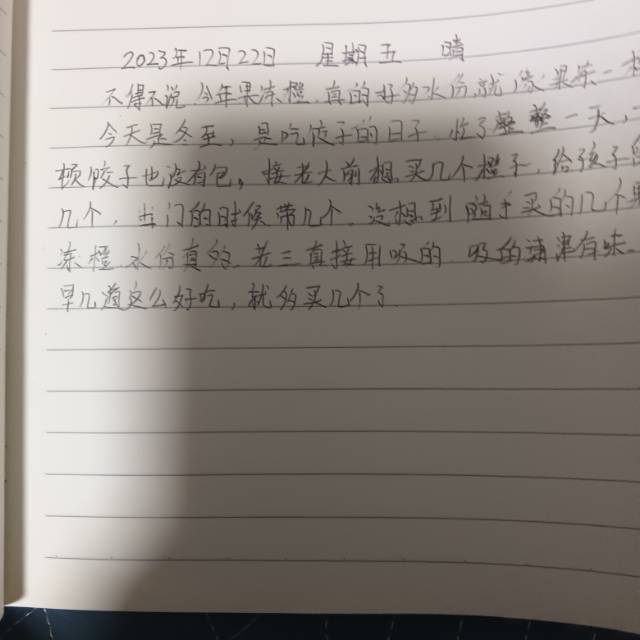 2023年12月22日 星期五 晴
不得不说,今年果冻橙,真的好多水份,就像果冻一
今天是冬至,是吃饺子的日子,忙了整整一天,
顿饺子也没有包,接老大前想买几个橙子,给孩子
几个,出门的时候带几个,没想到随手买的几个果
冻橙,水份真的,老二直接用吸的,吸的津津有味
早几道这么好吃,就多买几个了